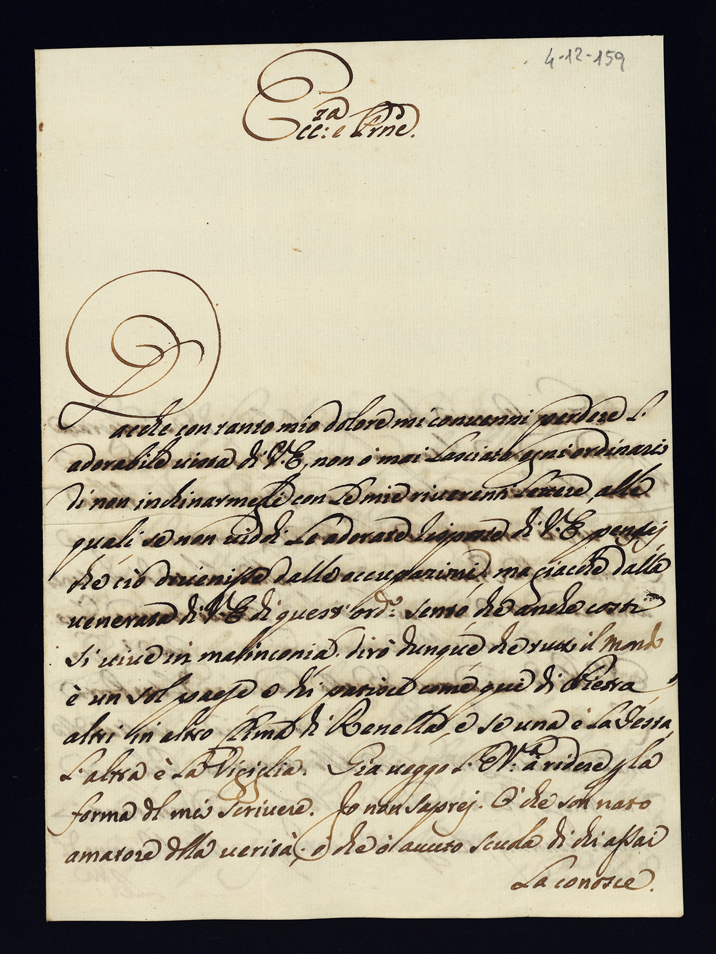 4-12-159
Ecc:za e Prne.
Dacche con tanto mio dolore mi convenni perdere l'
adorabile vista di V.E. non ò mai lasciato ogni ordinario
di non inchinarmele con le mie riverenti lettere, alle
quali se non viddi le adorate risposte di V.E. pensej
che ciò divenisse dalle occupazioni; ma giacche dalle
venerata di V.E. di quest' ord.o sento che anche costi
si vive in malinconia, dirò dunque che tutt' il mondo
è un sol paese e chi patisce come qui di Pietra
altri in altro clima di Renella, e se una è la Festa
l'altra è la Vigiglia. Gia veggo l' E.V.a à ridere p la
forma del mio scrivere. Io non saprej. O' che son nato
amatore della verità, o che ò avuto scuola di chi assai
la conosce.